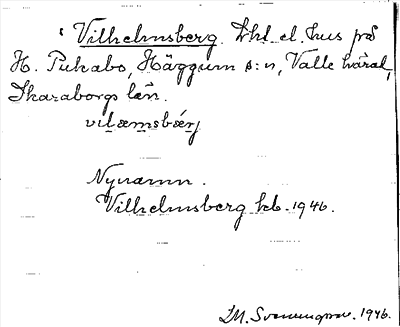 Vilhelmsberg. Lht el. hus på
H. Pukabo, Häggum s:n, Valle härad,
Skaraborgs län.
vilæmsbærj
Nynamn.
Vilhelmsberg kb. 1946.
I.M. 1946.